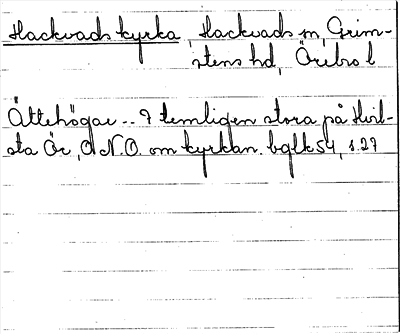 Hackvads kyrka, Hackvads sn, Grim-
stens hd, Örebro l
Ättehögar -- 9 temligen stora på Hvil-
sta Ör, O.N.O. om kyrkan. bqlk 54, s. 27